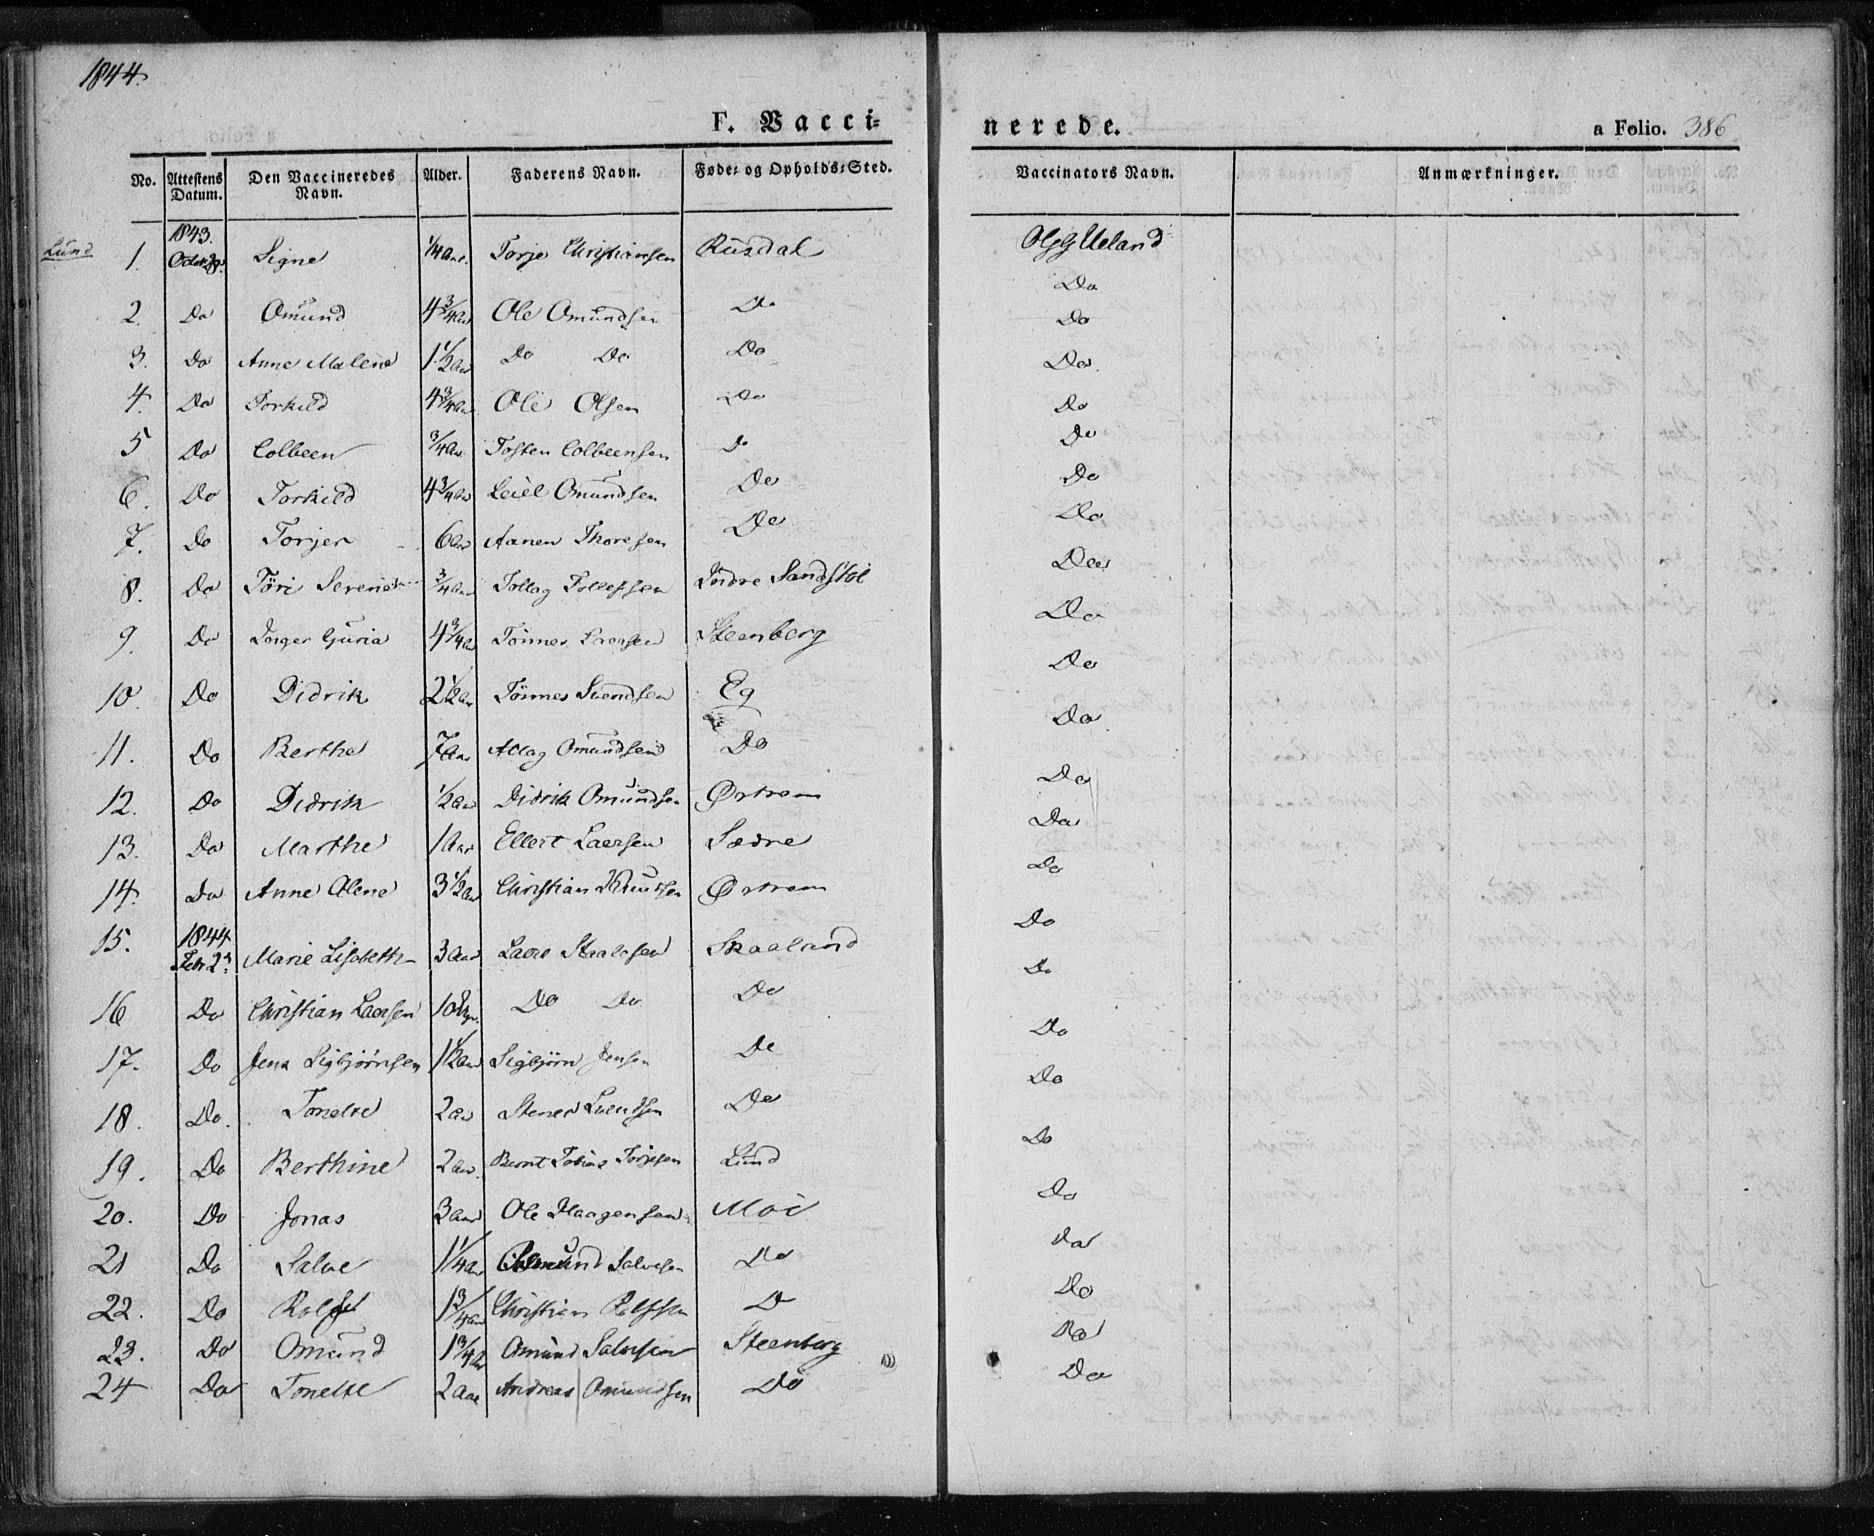 1844.
F. Vacci= nerede. a Folio. 386
No. Attestens Datum. Den Vaccineredes Navn. Alder. Faderens Navn. Føde= og Opholds=Sted. Vaccinators Navn. Anmærkninger.
Lund 1. 1843. Signe 1/4 Aar. Torje Christiansen Rusdal Ueland
2. Do Omund 4 3/4 Aar Ole Omundsen Do Do
3. Do Anne Malene 1 1/2 Aar Do Do Do Do
4. Do Torkild 4 3/4 Aar Ole Olsen Do Do
5 Do Colbeen 3/4 Aar Tosten Colbeensen Do Do
6. Do Torkild 4 3/4 Aar Leiel Omundsen Do Do
7. Do Torjer 6 Aar Aanen Thoresen Do Do
8. Do Töri Serene 3/4 Aar Tollag Tollefsen Indre Sandstöl Do
9. Do Guria 4 3/4 Aar Tönnes Laersen Steenberg Do
10. Do Didrik 2 1/2 Aar Tönnes Svendsen Eg Do
11. Do Berthe 7 Aar Atlag Omundsen Do Do
12. Do Didrik 1/2 Aar Didrik Omundsen Ørtrem Do
13. Do Marthe 1 Aar Ellert Laersen Sædre Do
14. Do Anne Olene 3 1/2 Aar Christian Knudsen Ørtrem Do
15. 1844 Febr 23 Marie Lisbeth 3 Aar Laers Staalesen Skaaland Do
16 Do Christian Laersen 10 Do Do Do Do
17. Do Jens Sigbjörnsen 1 1/2 Aar Sigbjörn Jensen Do Do
18. Do. Tonette 2 Aar Stener Svendsen Do Do
19. Do Berthine 2 Aar Bernt Tobias Torjesen Lund Do
20. Do Jonas 3 Aar Ole Haagensen Moi Do
21 Do Salve 1 1/4 Aar Omund Salvesen Do Do
22. Do Rolf 1 3/4 Aar Christian Rolfsen D Do
23. Do Omund 1 3/4 Aar Omund Salvesen Steenberg Do
24 Do Tonette 2 Aar Andreas Omundsen Do Do